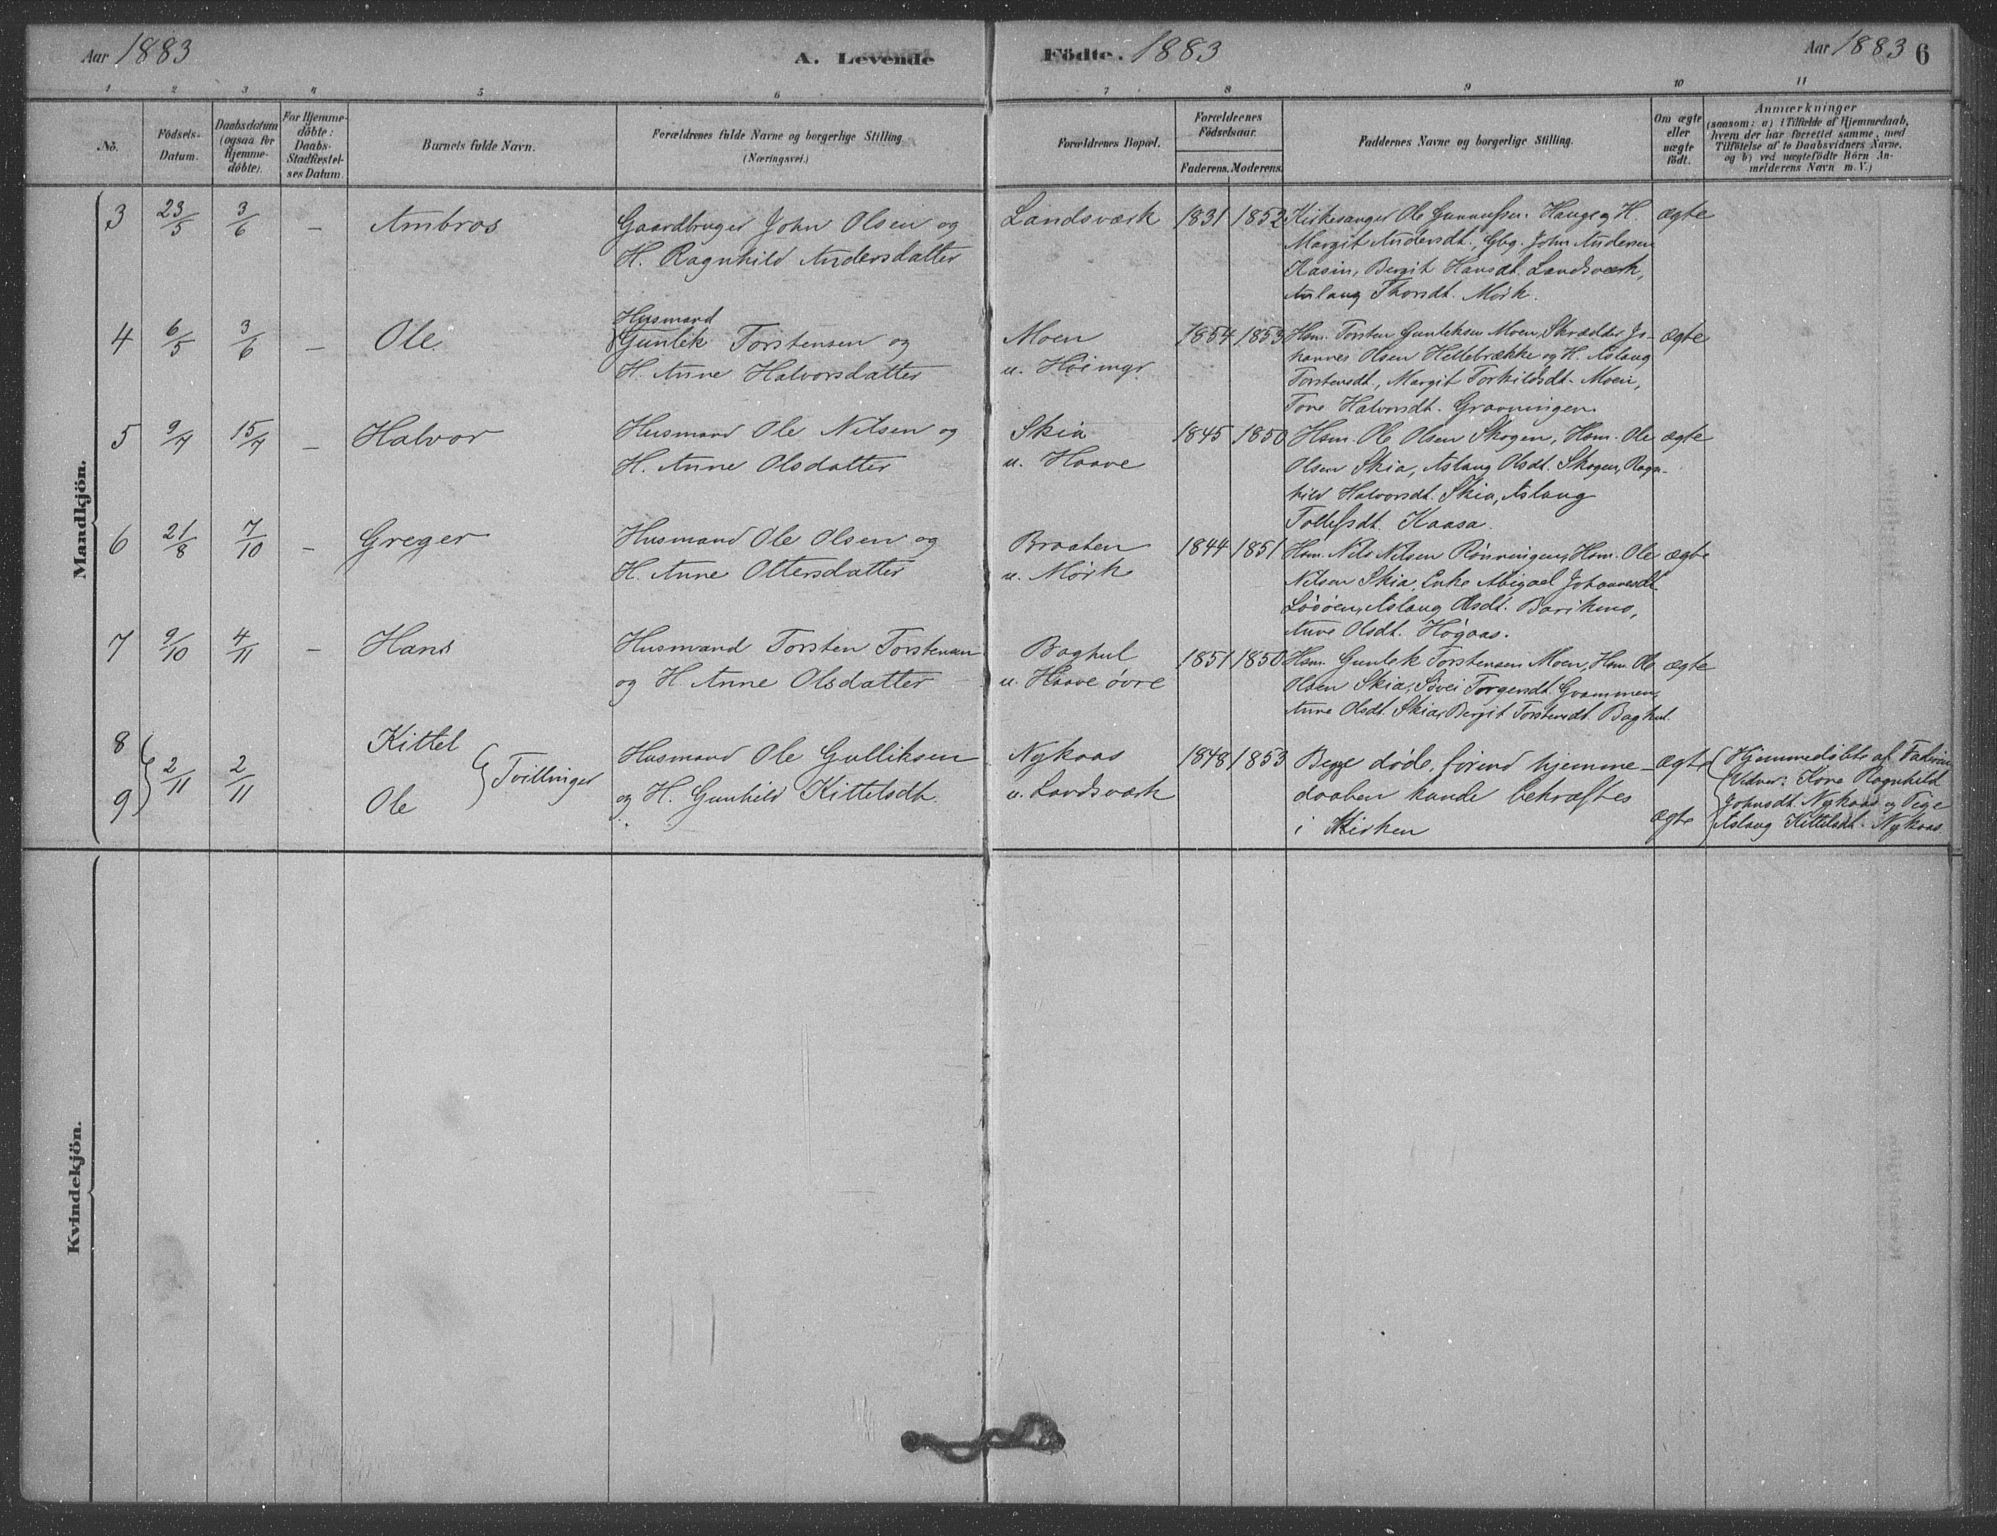 Aar 1883
A. Levende
Födte. 1883
Aar 1883 6
1 2 3 4 5 6 7 8 9 10 11
No.
Födsels-
Datum.
Daabsdatum
(ogsaa for
Hjemme-
döbte).
For Hjemme-
döbte:
Daabs-
Stadfæstel-
ses Datum.
Barnets fulde Navn.
Forældrenes fulde Navne og borgerlige Stilling
(Næringsvei.)
Forældrenes Bopæl.
Forældrenes
Födselsaar.
Faderens. Moderens.
Faddernes Navne og borgerlige Stilling.
Om ægte
eller
uægte
födt.
Anmærkninger
(saasom: a) i Tilfælde af Hjemmedaab,
hvem der har forrettet samme, med
Tilföielse af to Daabsvidners Navne.
og b) ved uægtefödte Börn An-
melderens Navn m. V.)
Mandkjön.
3 23/5 3/6 - Ambros
Gaardbruger John Olsen og
H. Ragnhild Andersdatter
Landsværk 1831 1852
Kirkesanger Ole Gunnufsen Hauge og H.
Margit Andersdt., Gbg. John Andersen
Kasin, Bergit Hansdt. Landsværk,
Aslaug Thorsdt. Mørk.
ægte
4 6/5 3/6 - Ole
Husmand
Gunlek Torstensen og
H. Anne Halvorsdatter
Moen
u. Høimyr
1854 1853
Hsm. Torsten Gunleksen Moen, Skrædder Jo-
hannes Olsen Hellebrække og H. Aslaug
Torstensdt., Margit Torkildsdt. Moen,
Tone Halvorsdt. Gravningen.
ægte
5 9/7 15/7 - Halvor
Husmand Ole Nilsen og
H. Anne Olsdatter
Skia
u. Haave
1845 1850
Hsm. Ole Olsen Skogen, Hsm. Ole
Olsen Skia, Aslaug Olsdt. Skogen, Ragn-
hild Halvorsdt. Skia, Aslaug
Tollefsdt. Kaasa.
ægte
6 21/8 7/10 - Greger
Husmand Ole Olsen og
H. Anne Ottersdatter
Braaten
u. Mørk
1844 1851
Hsm. Nils Nilsen Rønningen, Hsm. Ole
Nilsen Skia, Enke Abigael Johannesdt.
Aslaug Olsdt.
Anne Olsdt. Høgaas.
ægte
7 9/10 4/11 - Hans
Husmand Torsten Torstensen
og H. Anne Olsdatter
Baghul
u. Haave øvre
1851 1850
Hsm. Gunlek Torstensen Moen, Hsm. Ole
Olsen Skia, Søvei Torgersdt. Grammen,
Anne Olsdt. Skia, Bergit Torstensdt. Baghul.
ægte
8 Kittel
9 2/11 2/11 Ole
Tvillinger
Husmand Ole Gulliksen
og H. Gunhild Kittelsdt.
Nykaas
u. Landsværk
1848 1853
Begge døde, førend hjemme-
daaben kunde bekræftes
i Kirken
ægte
ægte
Hjemmedøbte af Faderen
Vidner: Kone Ragnhild
Johnsdt. Nykaas og Pige
Aslaug Kittelsdt. Nykaas.
Kvindekjön.